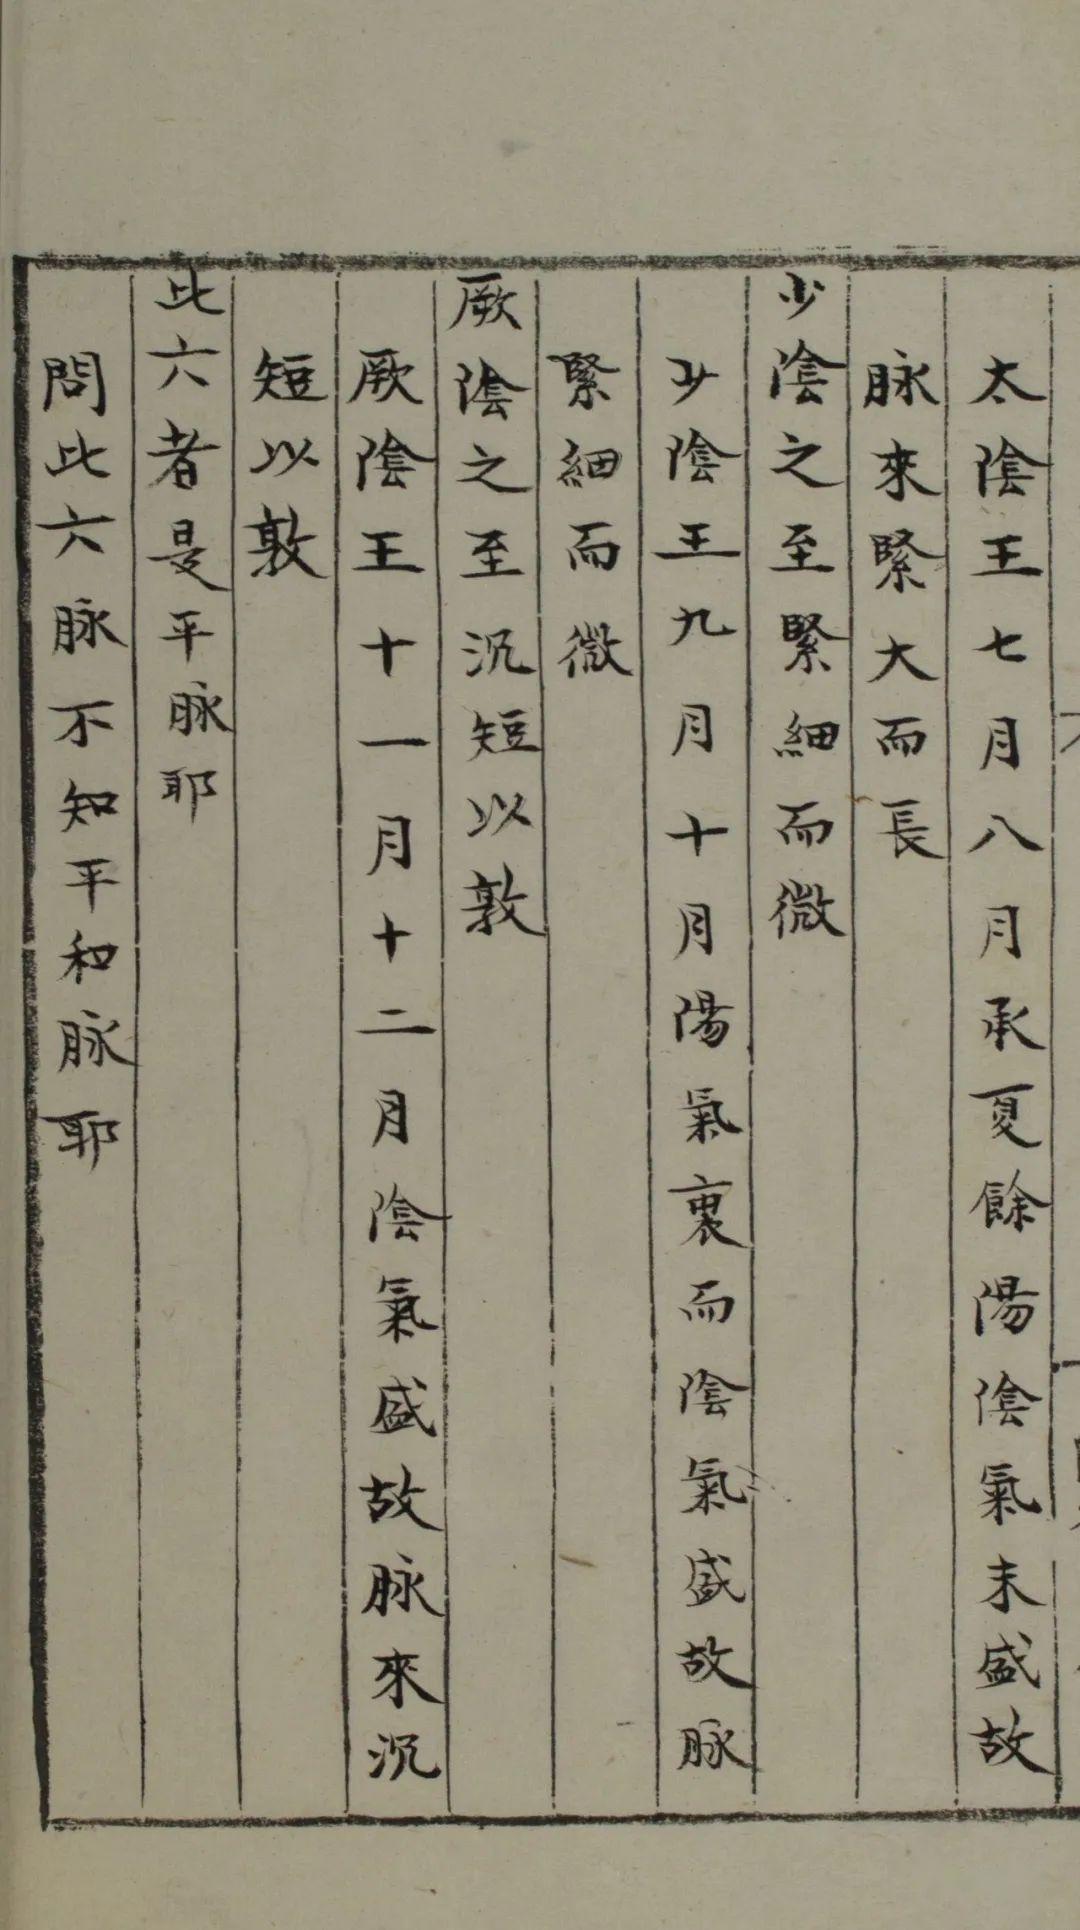 太陰王七月八月承夏餘陽陰氣未盛故
脉來緊大而長
少陰之至緊細而微
少陰王九月十月陽氣衰而陰氣盛故脉
緊細而微
厥陰之至沉短以敦
厥陰王十一月十二月陰氣盛故脉來沉
短以敦
此六者是平脉耶
問此六脉不知平和脉耶